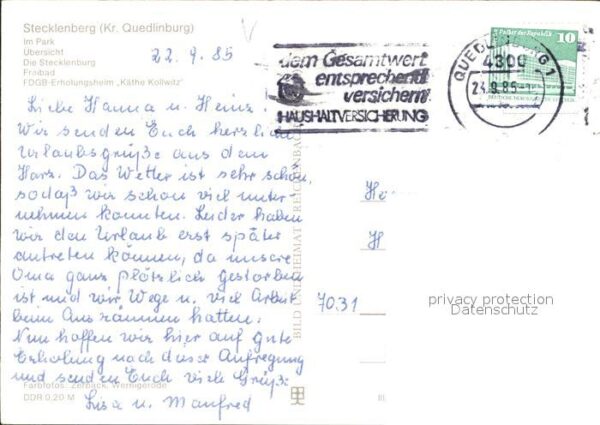 Stecklenberg (Kr. Quedlinburg)
Im Park
Übersicht
Die Stecklenburg
Freibad
FDGB-Erholungsheim „Käthe Kollwitz"
22.9.85
Liebe Hanna u. Heinz.
Wir senden Euch herzlich
Urlaubsgrüße aus dem
Harz. Das Wetter ist sehr schön,
sodaß wir schon viel unter-
nehmen konnten. Leider haben
wir den Urlaub erst später
antreten können, da unsere
Oma ganz plötzlich gestorben
ist und wir Wege u. viel Arbeit
beim Ausräumen hatten.
Nun hoffen wir hier auf gute
Erholung nach dieser Aufregung
und senden Euch viele Grüße
Lisa u. Manfred
Farbfotos: Zerback, Wernigerode
DDR 0,20 M
BILD UND HEIMAT REICHENBACH
dem Gesamtwert
entsprechend
versichern
HAUSHALTVERSICHERUNG
QUEDLINBURG 1
4300
23.9.85
Palast der Republik
10
7031
privacy protection
Datenschutz